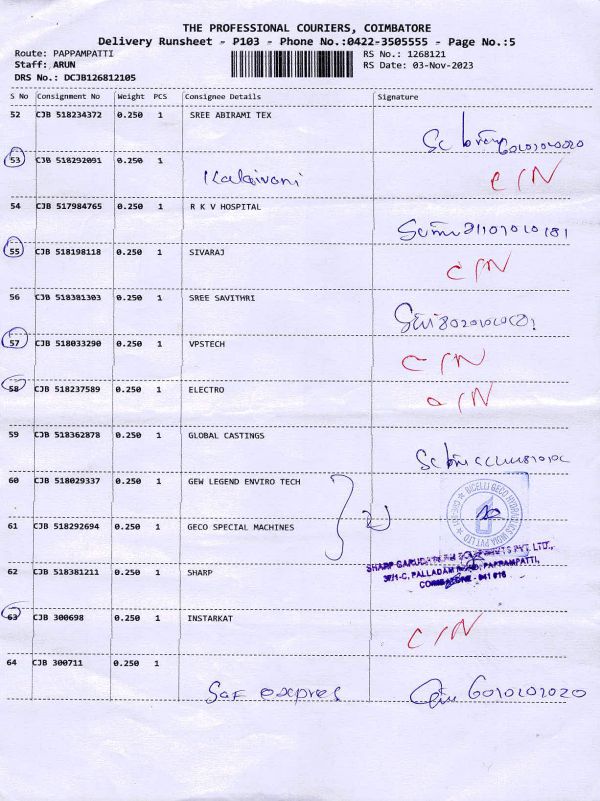 THE PROFESSIONAL COURIERS, COIMBATORE
Delivery Runsheet - P103 - Phone No.:0422-3505555 - Page No.:5
Route: PAPPAMPATTI
RS No.: 1268121
Staff: ARUN
RS Date: 03-Nov-2023
DRS No.: DCJB126812105
S No Consignment No Weight PCS Consignee Details Signature
52 CJB 518234372 0.250 1 SREE ABIRAMI TEX
53 CJB 518292091 0.250 1
Kalaivani C/N
54 CJB 517984765 0.250 1 R K V HOSPITAL
55 CJB 518198118 0.250 1 SIVARAJ
C/N
56 CJB 518381303 0.250 1 SREE SAVITHRI
57 CJB 518033290 0.250 1 VPSTECH
C/N
58 CJB 518237589 0.250 1 ELECTRO
C/N
59 CJB 518362878 0.250 1 GLOBAL CASTINGS
60 CJB 518029337 0.250 1 GEW LEGEND ENVIRO TECH
61 CJB 518292694 0.250 1 GECO SPECIAL MACHINES
62 CJB 518381211 0.250 1 SHARP
37/1-C, PALLADAM ROAD, PAPPAMPATTI,
COIMBATORE - 641 016
63 CJB 300698 0.250 1 INSTARKAT
C/N
64 CJB 300711 0.250 1
Saf expres 6010201020